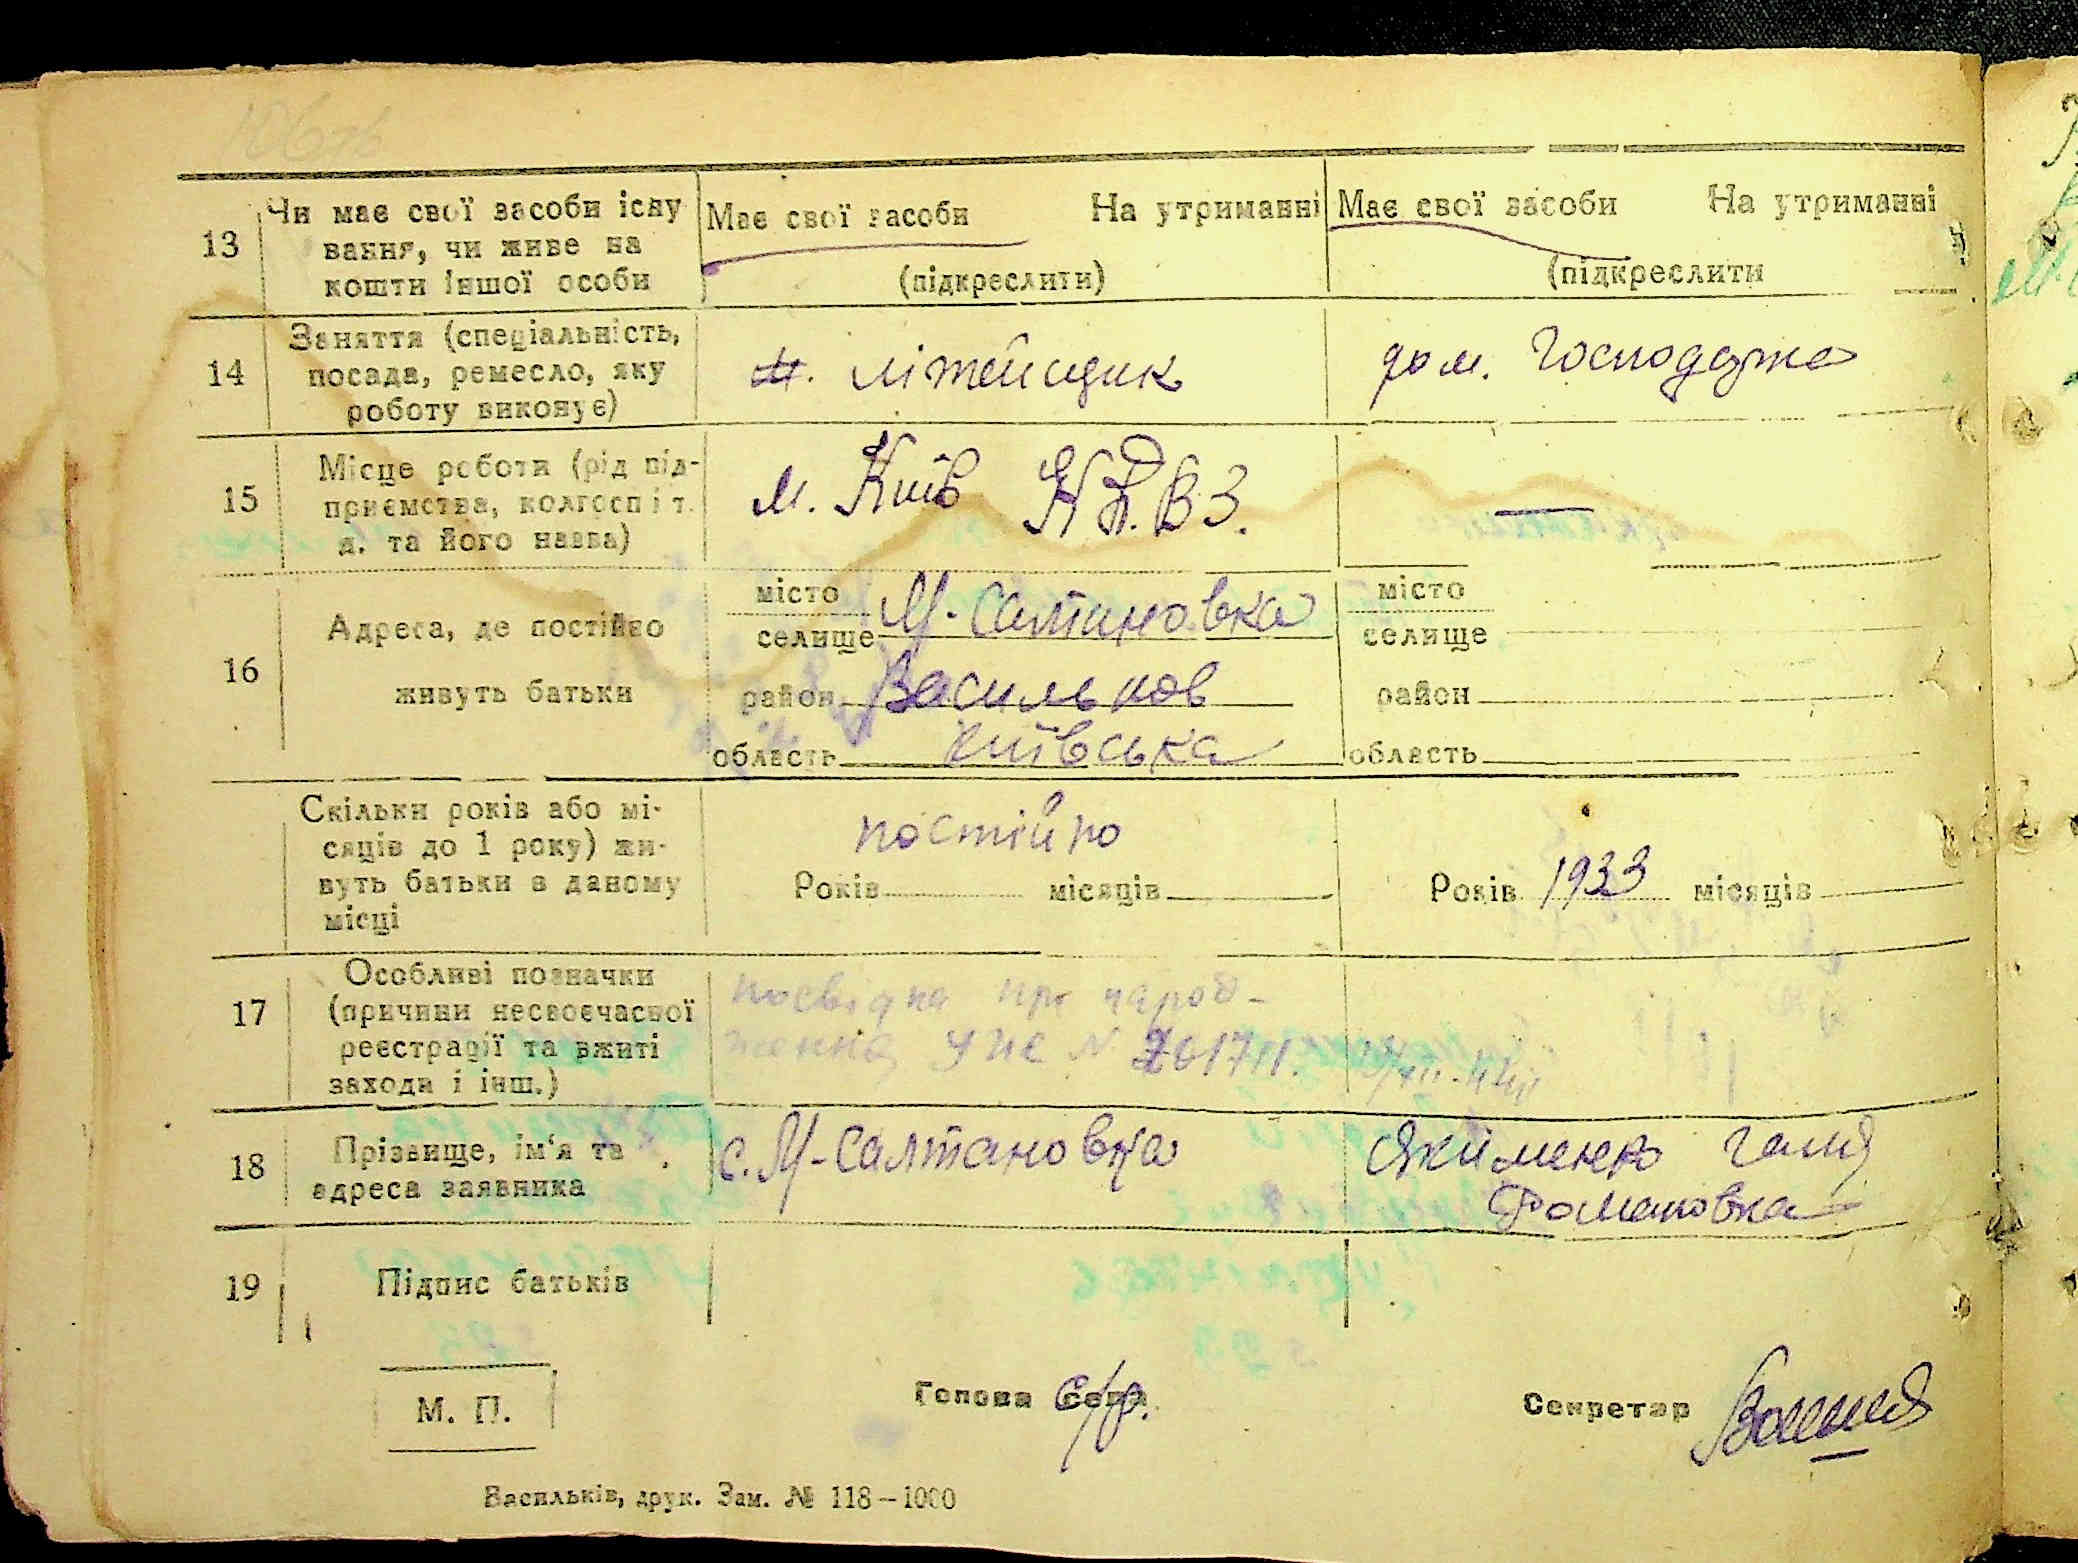 13
Чи має свої засоби існу
вання, чи живе на
кошти іншої особи
Має свої засоби На утриманні
(підкреслити)
Має свої засоби На утриманні
(підкреслити
14
Заняття (спеціальність,
посада, ремесло, яку
роботу виконує)
літейщик
дом. Господарка
15
Місце роботи (рід під-
приємства, колгосп і т.
д. та його назва)
м. Київ К.П.В.З.
—
16
Адреса, де постійно
живуть батьки
місто
селище М-Салтановка
район Васильков
область Київська
місто
селище
район
область
Скільки років або мі-
сяців до 1 року) жи-
вуть батьки в даному
місці
постійно
Років місяців
Років 1933 місяців
17
Особливі позначки
(причини несвоєчасної
реєстрації та вжиті
заходи і інш.)
посвідка про народ-
ження УПС N 261711.
18
Прізвище, ім'я та
адреса заявника
с. М-Салтановка
Якименко Галя
Романовка
19
Підпис батьків
М. П.
Голова
Секретар
Васильків, друк. Зам. № 118—1000